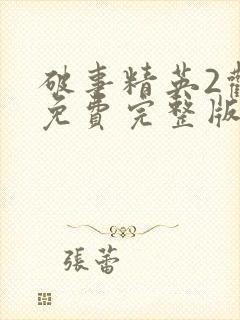 破事精英2觀
免費完整版
張蕾